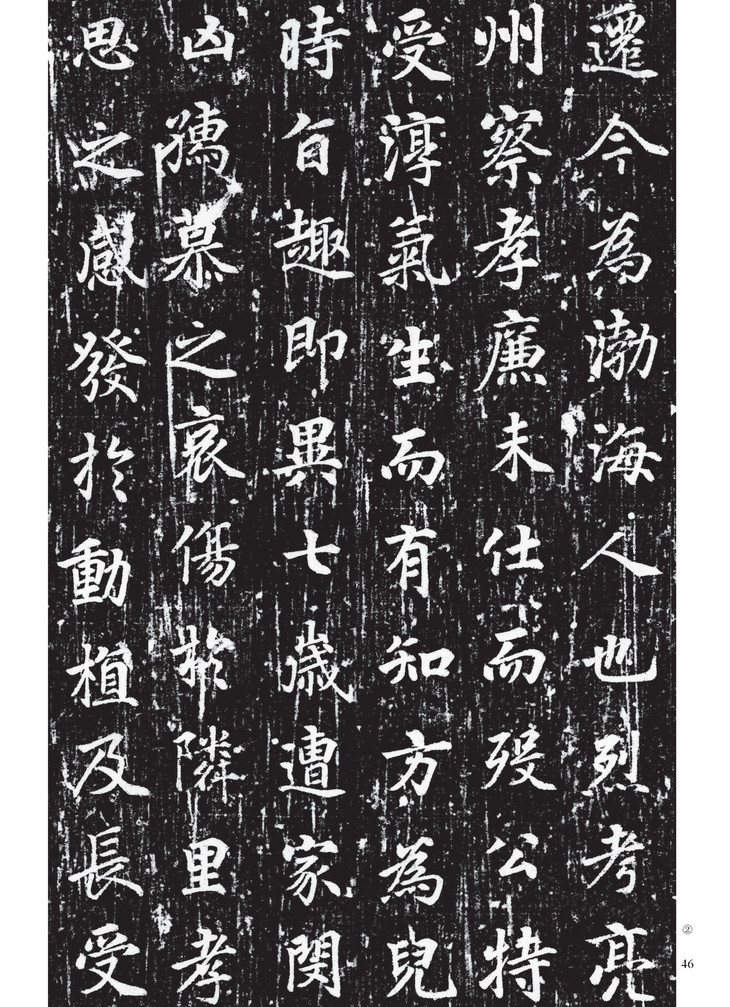 遷今為渤海人也烈考亮
州察孝廉未仕而殁公特
受淳氣生而有知方為兒
時旨趣即異七歲遭家閔
凶孺慕之哀傷於隣里孝
思之感發於動植及長受
②
46